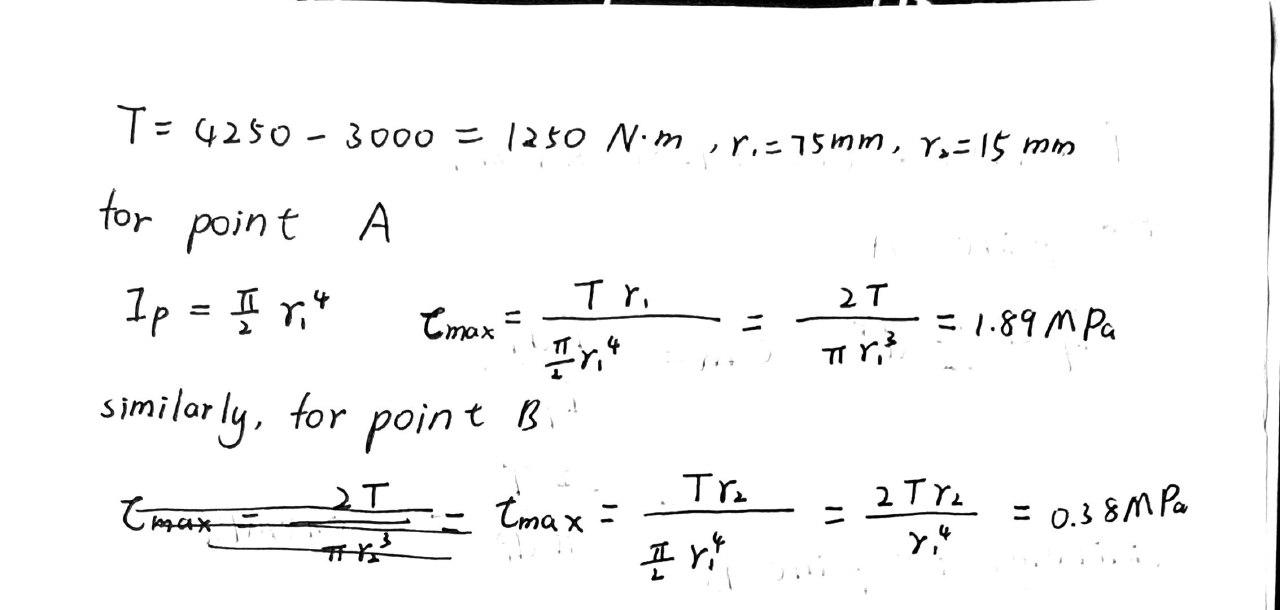 T = 4250 - 3000 = 1250 N·m , r₁ = 75mm, r₂ = 15 mm
for point A
Ip = π/2 r₁⁴ τmax = T r₁ / (π/2 r₁⁴) = 2T / (π r₁³) = 1.89 MPa
similarly, for point B
τmax = 2T / (π r₂³) = τmax = T r₂ / (π/2 r₁⁴) = 2 T r₂ / r₁⁴ = 0.38 MPa